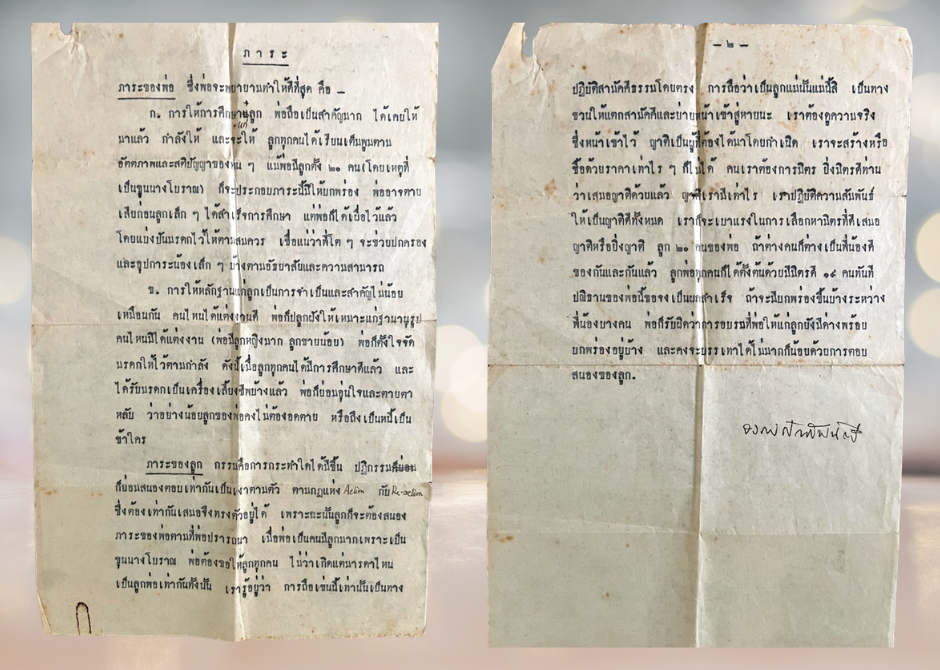 ภาระ
ภาระของพ่อ ซึ่งพ่อจะพยายามทำให้ดีที่สุด คือ –
ก. การให้การศึกษาแก่ลูก พ่อถือเป็นสำคัญมาก ได้เคยให้
มาแล้ว กำลังให้ และจะให้ ลูกทุกคนได้เรียนเต็มพูนตาม
อัตตภาพและสติปัญญาของตน ๆ แม้พ่อมีลูกตั้ง ๒๐ คน (โดยเหตุที่
เป็นขุนนางโบราณ) ก็จะประกอบภาระนี้มิให้บกพร่อง พ่ออาจตาย
เสียก่อนลูกเล็ก ๆ ได้สำเร็จการศึกษา แต่พ่อก็ได้เผื่อไว้แล้ว
โดยแบ่งปันมรดกไว้ให้ตามสมควร เชื่อแน่ว่าพี่โต ๆ จะช่วยปกครอง
และอุปการะน้องเล็ก ๆ บ้างตามอัธยาศัยและความสามารถ
ข. การให้หลักฐานแก่ลูกเป็นการจำเป็นและสำคัญไม่น้อย
เหมือนกัน คนไหนได้แต่งงานดี พ่อก็ปลูกฝังให้เหมาะแก่ฐานานุรูป
คนไหนมิได้แต่งงาน (พ่อมีลูกหญิงมาก ลูกชายน้อย) พ่อก็ตั้งใจจัด
มรดกให้ไว้ตามกำลัง ดังนี้เมื่อลูกทุกคนได้มีการศึกษาดีแล้ว และ
ได้รับมรดกเป็นเครื่องเลี้ยงชีพบ้างแล้ว พ่อก็ย่อมอุ่นใจและตายตา
หลับ ว่าอย่างน้อยลูกของพ่อคงไม่ต้องอดตาย หรือถึงเป็นหนี้เป็น
ข้าใคร
ภาระของลูก กรรมคือการกระทำใดได้มีขึ้น ปฏิกรรม
ก็ย่อมสนองตอบเท่ากันเป็นเงาตามตัว ตามกฎแห่ง Action กับ Re-action
ซึ่งต้องเท่ากันเสมอจึงทรงตัวอยู่ได้ เพราะฉะนั้นลูกก็จะต้องสนอง
ภาระของพ่อตามที่พ่อปรารถนา เมื่อพ่อเป็นคนมีลูกมากเพราะเป็น
ขุนนางโบราณ พ่อต้องขอให้ลูกทุกคน ไม่ว่าเกิดแต่มารดาไหน
เป็นลูกพ่อเท่ากันทั้งนั้น เรารู้อยู่ว่า การถือเช่นนี้เท่านั้นเป็นทาง
– ๒ –
ปฏิบัติสามัคคีธรรมโดยตรง การถือว่าเป็นลูกแม่นั้นแม่นี้สิ เป็นทาง
ชวนให้แตกสามัคคีและบ่ายหน้าเข้าสู่หายนะ เราต้องดูความจริง
ซึ่งหน้าเข้าไว้ ญาติเป็นผู้ที่ต้องได้มาโดยกำเนิด เราจะสร้างหรือ
ซื้อด้วยราคาเท่าไร ๆ ก็ไม่ได้ คนเราต้องการมิตร ยิ่งมิตรที่ท่าน
ว่าเสมอญาติด้วยแล้ว ญาติเรามีเท่าไร เราปฏิบัติความสัมพันธ์
ให้เป็นญาติดีทั้งหมด เราก็จะเบาแรงในการเลือกหามิตรที่ดีเสมอ
ญาติหรือยิ่งญาติ ลูก ๒๐ คนของพ่อ ถ้าต่างคนก็ต่างเป็นพี่น้องดี
ของกันและกันแล้ว ลูกพ่อทุกคนก็ได้ตั้งต้นด้วยมีมิตรดี ๑๙ คนทันที
ปณิธานของพ่อนี้ขอจงเป็นผลสำเร็จ ถ้าจะมีบกพร่องขึ้นบ้างระหว่าง
พี่น้องบางคน พ่อก็รับผิดว่าการอบรมที่พ่อให้แก่ลูกยังมีด่างพร้อย
บกพร่องอยู่บ้าง และคงจะบรรเทาได้ไม่มากก็น้อยด้วยการตอบ
สนองของลูก.